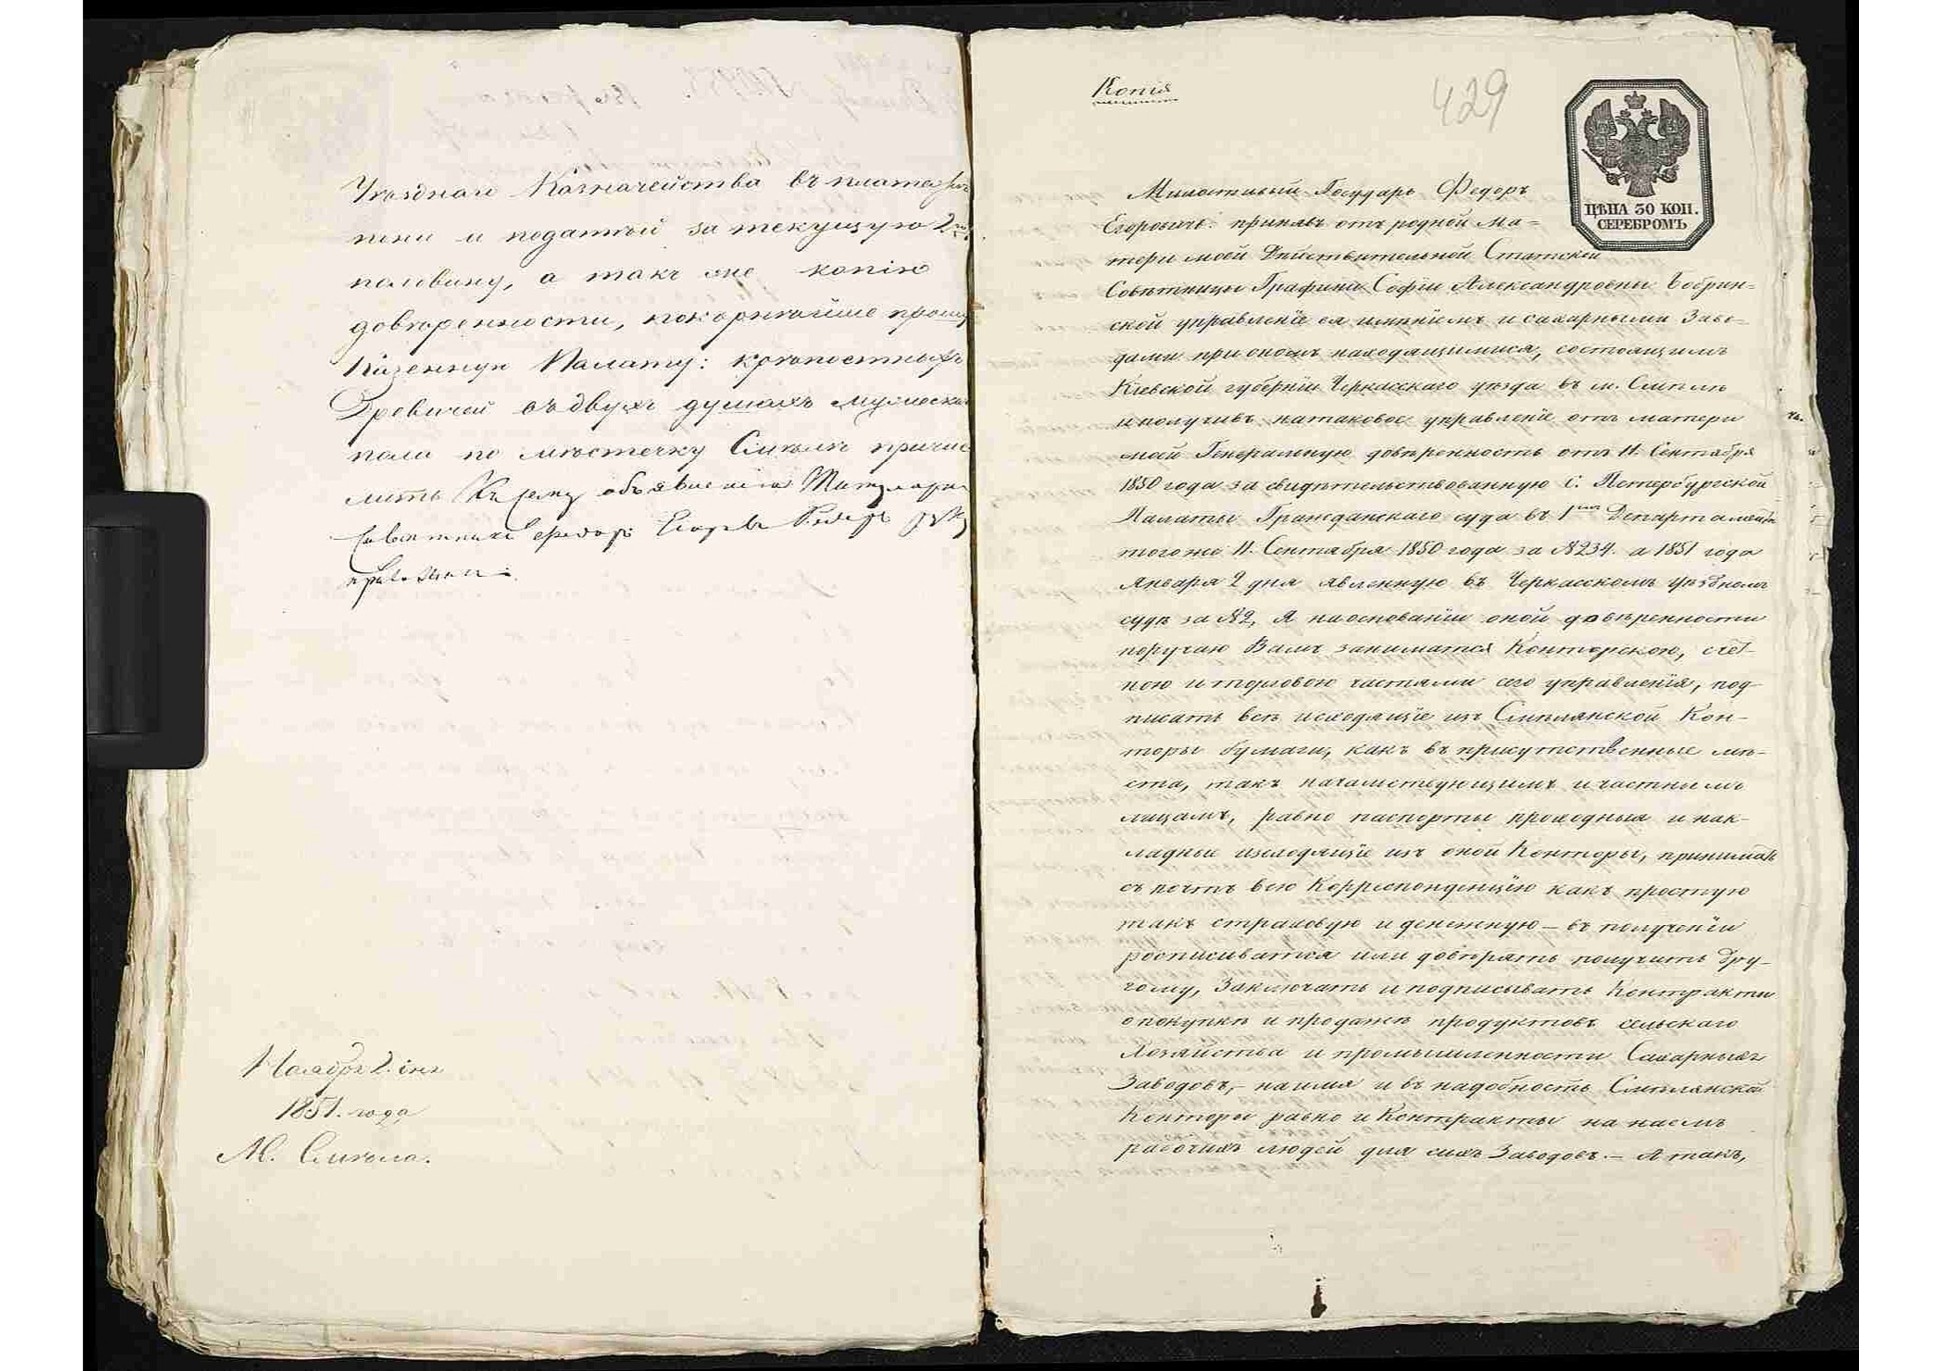 Уезднаго Казначейства въ платеже
пени и податьей за текущую 2ю
половину, а такъ же копію
доверенности, покорнейше прошу
Казенную Палату: крепостныхъ
въ двухъ душахъ мужеска
пола по местечку Смела причис
лить Къ сему объявленію Титулярн
Советникъ Федоръ Егоровъ руку
приложилъ.
Ноября 2 дня
1851. года
М. Смела.
Копія
429
ЦѢНА 30 КОП.
СЕРЕБРОМЪ
Милостивый Государь Федоръ
Егоровичъ: принявъ отъ родной Ма=
тери моей Действительной Статской
Советницы Графини Софіи Александровны Бобрин=
ской управленіе ея именіемъ и сахарными Заво=
дами при ономъ находящимися, состоящимъ
Кіевской губерніи Черкасскаго уезда въ м. Смеле
и получивъ на таковое управленіе отъ матери
моей Генеральную доверенность отъ 11. Сентября
1850 года за свидетельствованную С. Петербургской
Палаты Гражданскаго суда въ 1мъ Департаменте
тогоже 11. Сентября 1850 года за №234. а 1851 года
Января 2 дня явленную въ Черкасскомъ уездномъ
суде за №2, Я на основаніи оной доверенности
поручаю Вамъ заниматся Конторскою, счет-
ною и торговою частями сего управленія, под-
писать все исходящіе изъ Смелянской Кон-
торы бумаги, какъ въ присутственные ме-
ста, такъ начальствующимъ и частнымъ
лицамъ, равно паспорты проходныя и нак-
ладные исходящіе изъ оной Конторы, принимать
съ почтъ всю Корреспонденцію какъ простую
такъ страховую и денежную – въ полученіи
росписыватся или доверять получить дру-
гому, Заключать и подписывать Контракты
о покупке и продаже продуктовъ сельскаго
Хозяйства и промышленности Сахарныхъ
Заводовъ,– на имя и въ надобность Смелянской
Конторы равно и Контракты на наемъ
рабочихъ людей для сихъ Заводовъ. – А такъ,